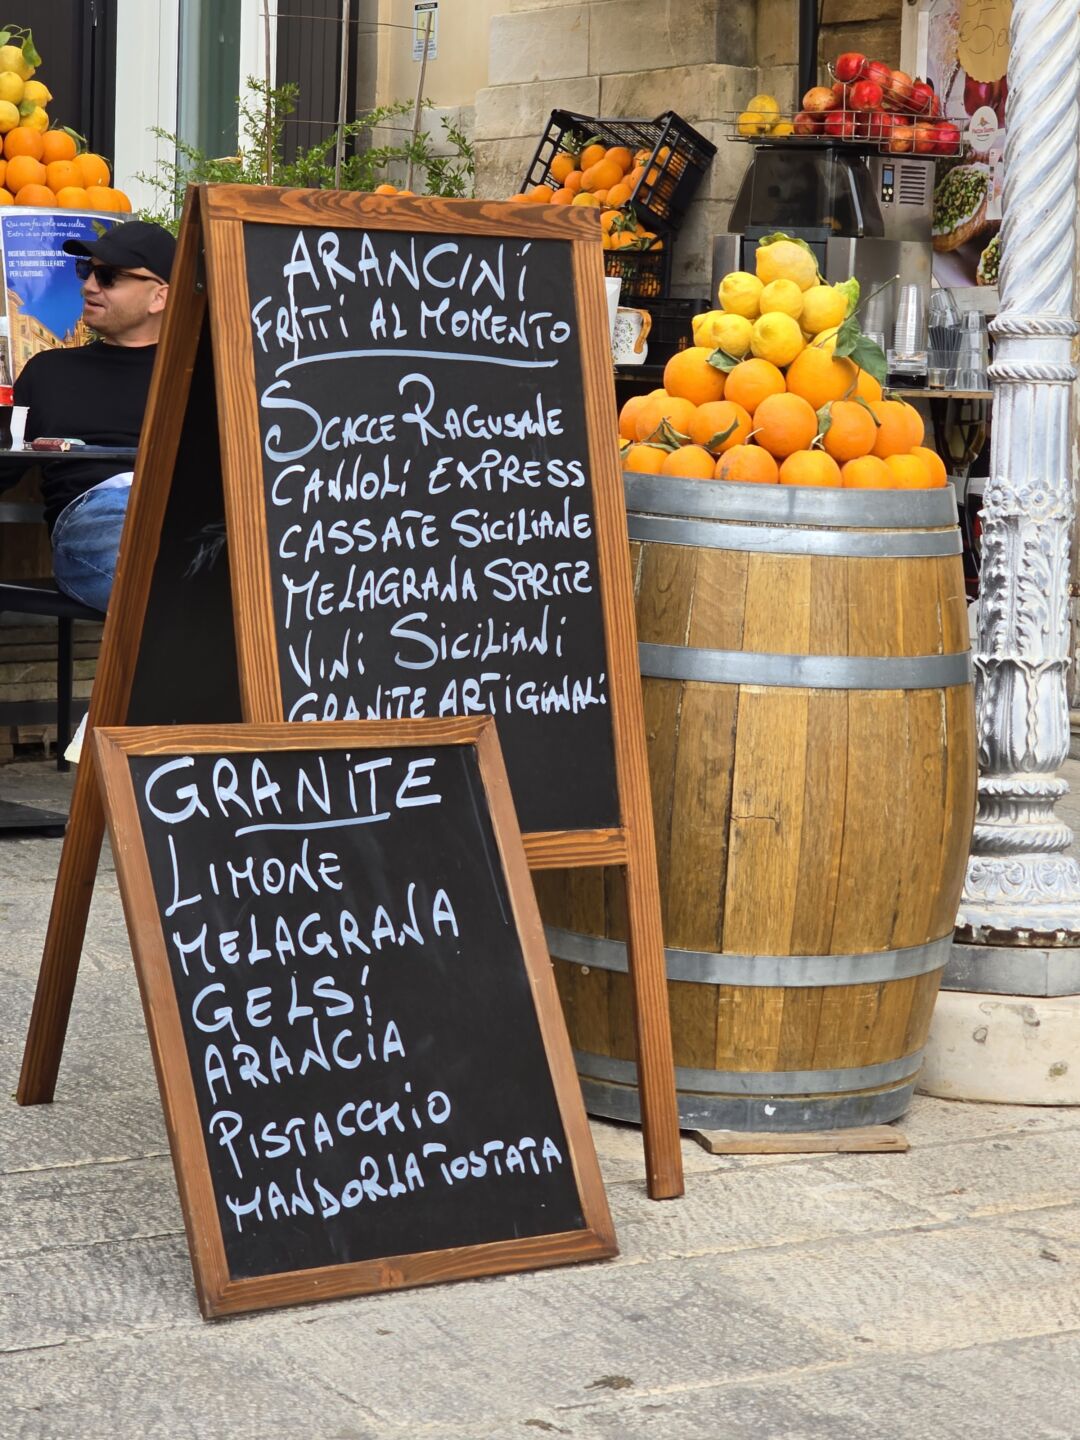 ARANCINI
FRITTI AL MOMENTO
SCACCE RAGUSANE
CANNOLI EXPRESS
CASSATE SICILIANE
MELAGRANA SPRITZ
VINI SICILIANI
GRANITE ARTIGIANALI
GRANITE
LIMONE
MELAGRANA
GELSI
ARANCIA
PISTACCHIO
MANDORLA TOSTATA
Qui non fai solo una scelta.
Entri in un percorso etico
INSIEME SOSTENIAMO UN
DE "I BAMBINI DELLE FATE"
PER L'AUTISMO.
€5,00